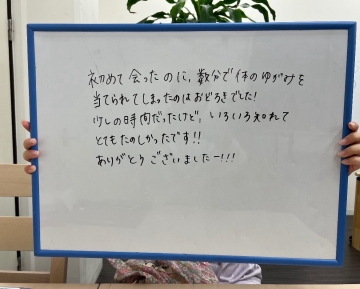 初めて会ったのに、数分で体のゆがみを
当てられてしまったのはおどろきでした!
少しの時間だったけど、いろいろ知れて
とてもたのしかったです!!
ありがとうございましたー!!!